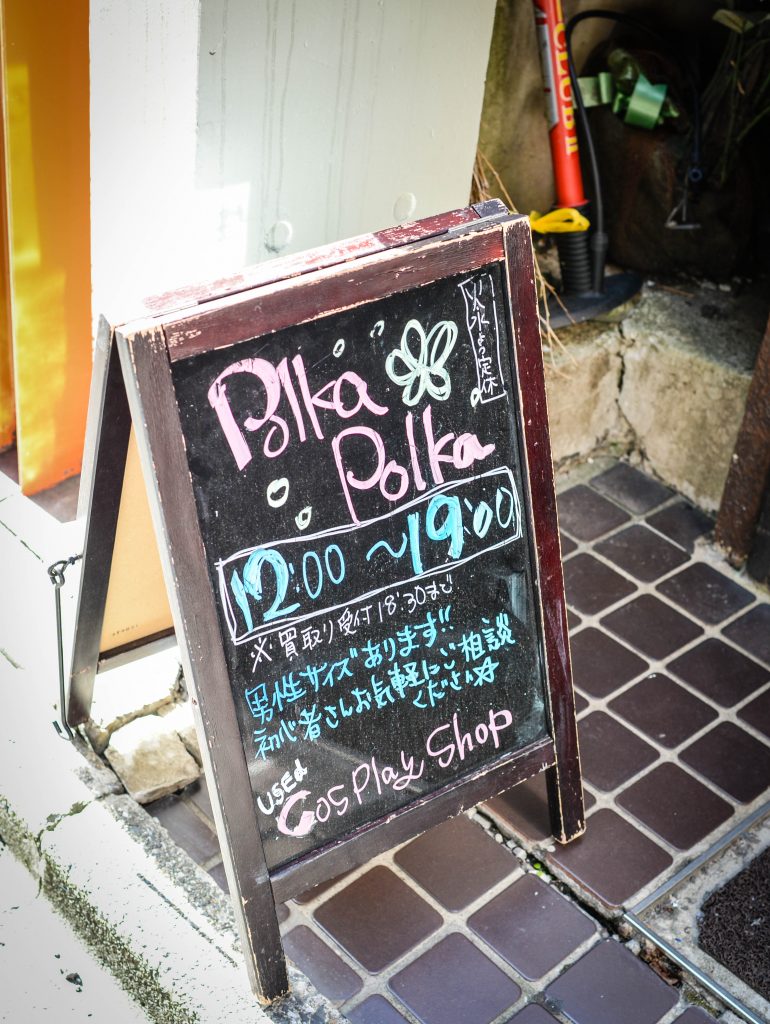 Polka
Polka
火水よう定休
12:00 〜 19:00
※買取り受付18:30まで
男性サイズあります!!
初心者さんお気軽にご相談
ください
USED
Cosplay Shop
CLUB II